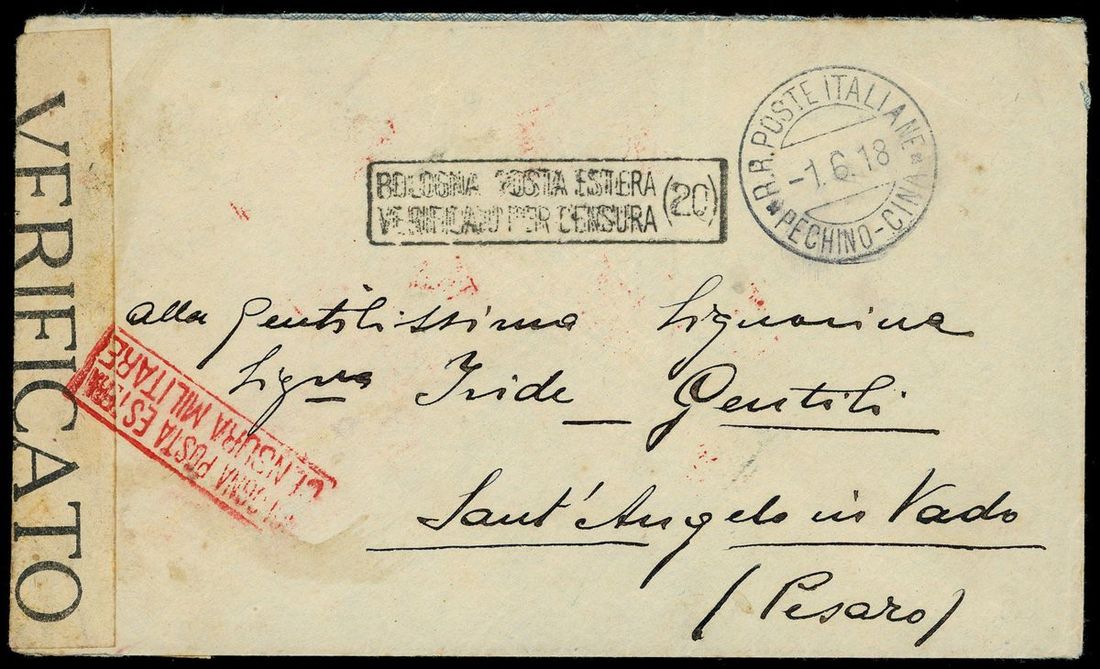 VERIFICATO
BOLOGNA POSTA ESTERA
VERIFICATO PER CENSURA
(20)
R.R. POSTE ITALIANE
-1.6.18
PECHINO-CINA
alla Gentilissima Signorina
Signa Iride Gentili
Sant'Angelo in Vado
(Pesaro)
BOLOGNA POSTA ESTERA
CENSURA MILITARE